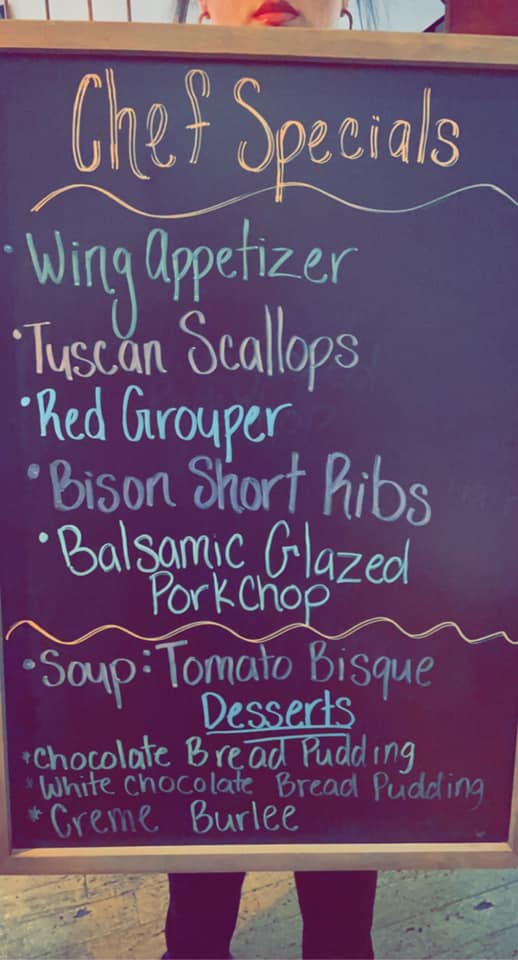 Chef Specials
• Wing Appetizer
• Tuscan Scallops
• Red Grouper
• Bison Short Ribs
• Balsamic Glazed
Porkchop
• Soup: Tomato Bisque
Desserts
* Chocolate Bread Pudding
* White chocolate Bread Pudding
* Creme Burlee